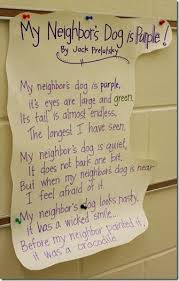 My Neighbor's Dog is Purple!
By Jack Prelutsky
My neighbor's dog is purple,
it's eyes are large and green.
Its tail is almost endless,
The longest I have seen.
My neighbor's dog is quiet,
It does not bark one bit.
But when my neighbor's dog is near
I feel afraid of it.
My neighbor's dog looks nasty,
It was a wicked smile...
Before my neighbor painted it,
it was a crocodile.